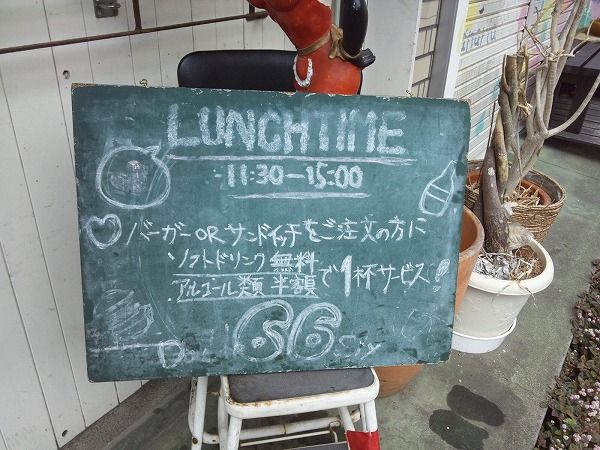 LUNCHTIME
11:30-15:00
バーガー OR サンドイッチをご注文の方に
ソフトドリンク 無料
アルコール類 半額 で1杯サービス!!
66